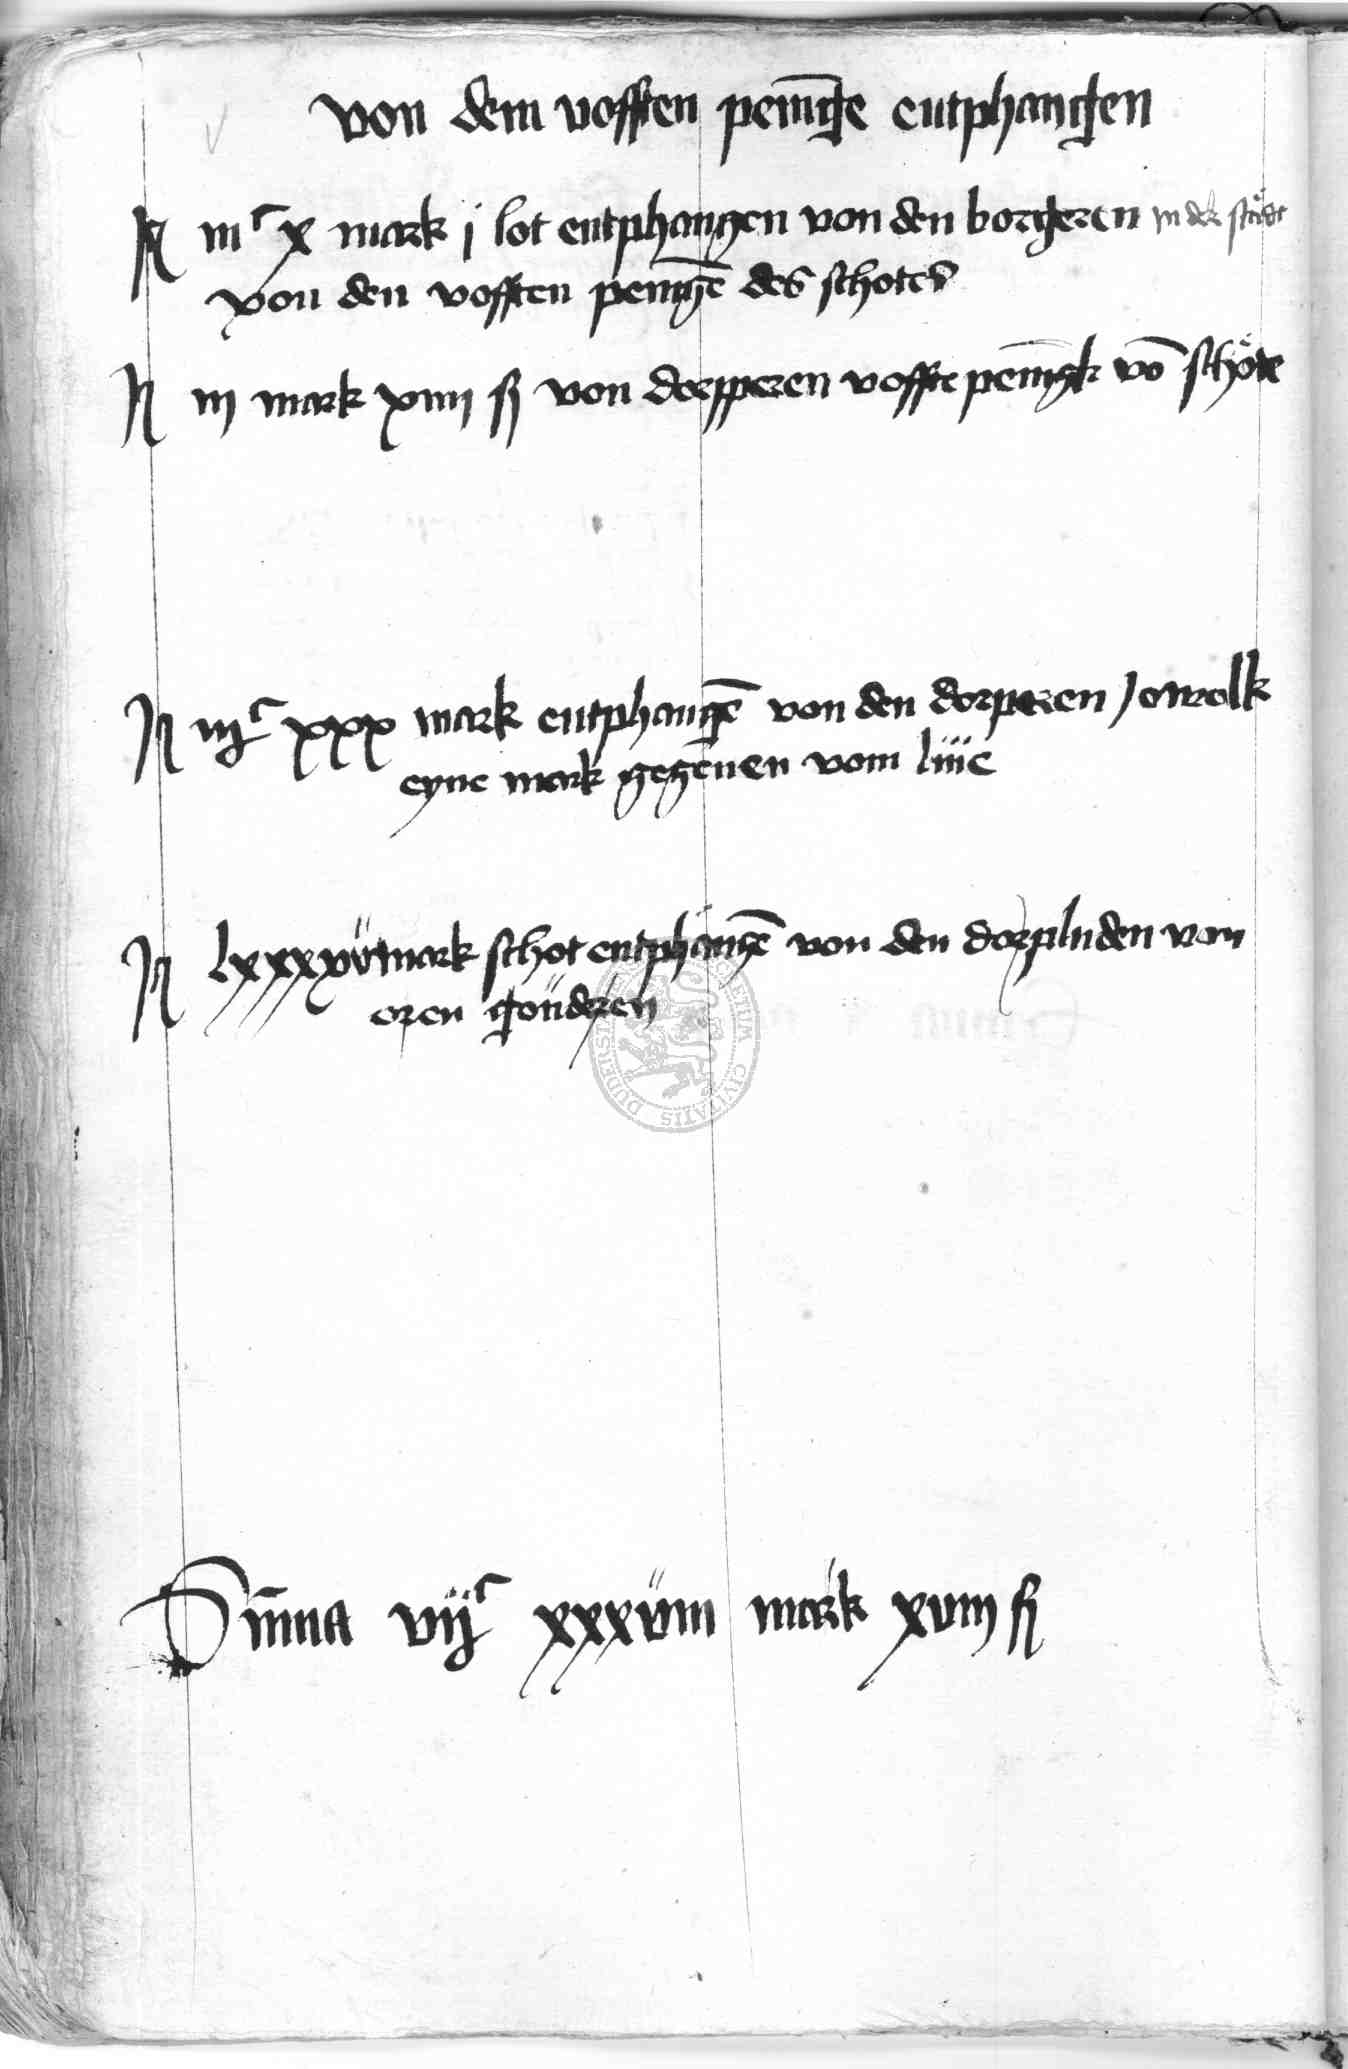 von dem vofften penīge entphangen
It iiiᶜ x mark j lot entphangen von den borgeren in der stadt
von den vofften penīgē des schotes
It iij mark xiiij ß von dorpperen voffte penīgk vō schöte
It iijᶜ xxx mark entphangē von den dorperen Jowelk
eyne mark gegeuen vom liiie
It lxxxxv mark schot entphangē von den dorpluden von
oren goüderen
Sūma vijᶜ xxxviii mark xviij ß
SECRETUM CIVITATIS DUDERST